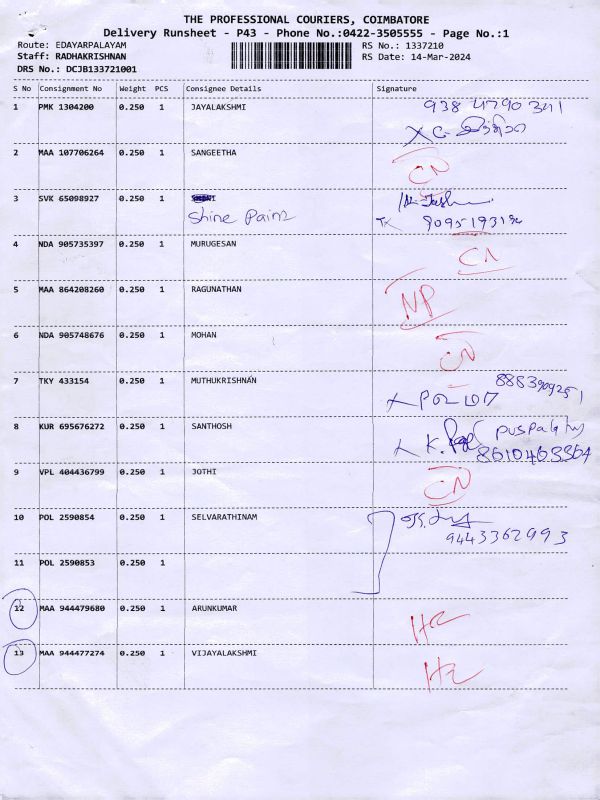 THE PROFESSIONAL COURIERS, COIMBATORE
Delivery Runsheet - P43 - Phone No.:0422-3505555 - Page No.:1
Route: EDAYARPALAYAM RS No.: 1337210
Staff: RADHAKRISHNAN RS Date: 14-Mar-2024
DRS No.: DCJB133721001
S No Consignment No Weight PCS Consignee Details Signature
1 PMK 1304200 0.250 1 JAYALAKSHMI 938 4790 341
2 MAA 107706264 0.250 1 SANGEETHA CN
3 SVK 65098927 0.250 1
Shine Painz
4 NDA 905735397 0.250 1 MURUGESAN CN
5 MAA 864208260 0.250 1 RAGUNATHAN NP
6 NDA 905748676 0.250 1 MOHAN CN
7 TKY 433154 0.250 1 MUTHUKRISHNAN 8853909251
8 KUR 695676272 0.250 1 SANTHOSH K.
8610463364
9 VPL 404436799 0.250 1 JOTHI CN
10 POL 2590854 0.250 1 SELVARATHINAM
9443362993
11 POL 2590853 0.250 1
12 MAA 944479680 0.250 1 ARUNKUMAR
13 MAA 944477274 0.250 1 VIJAYALAKSHMI